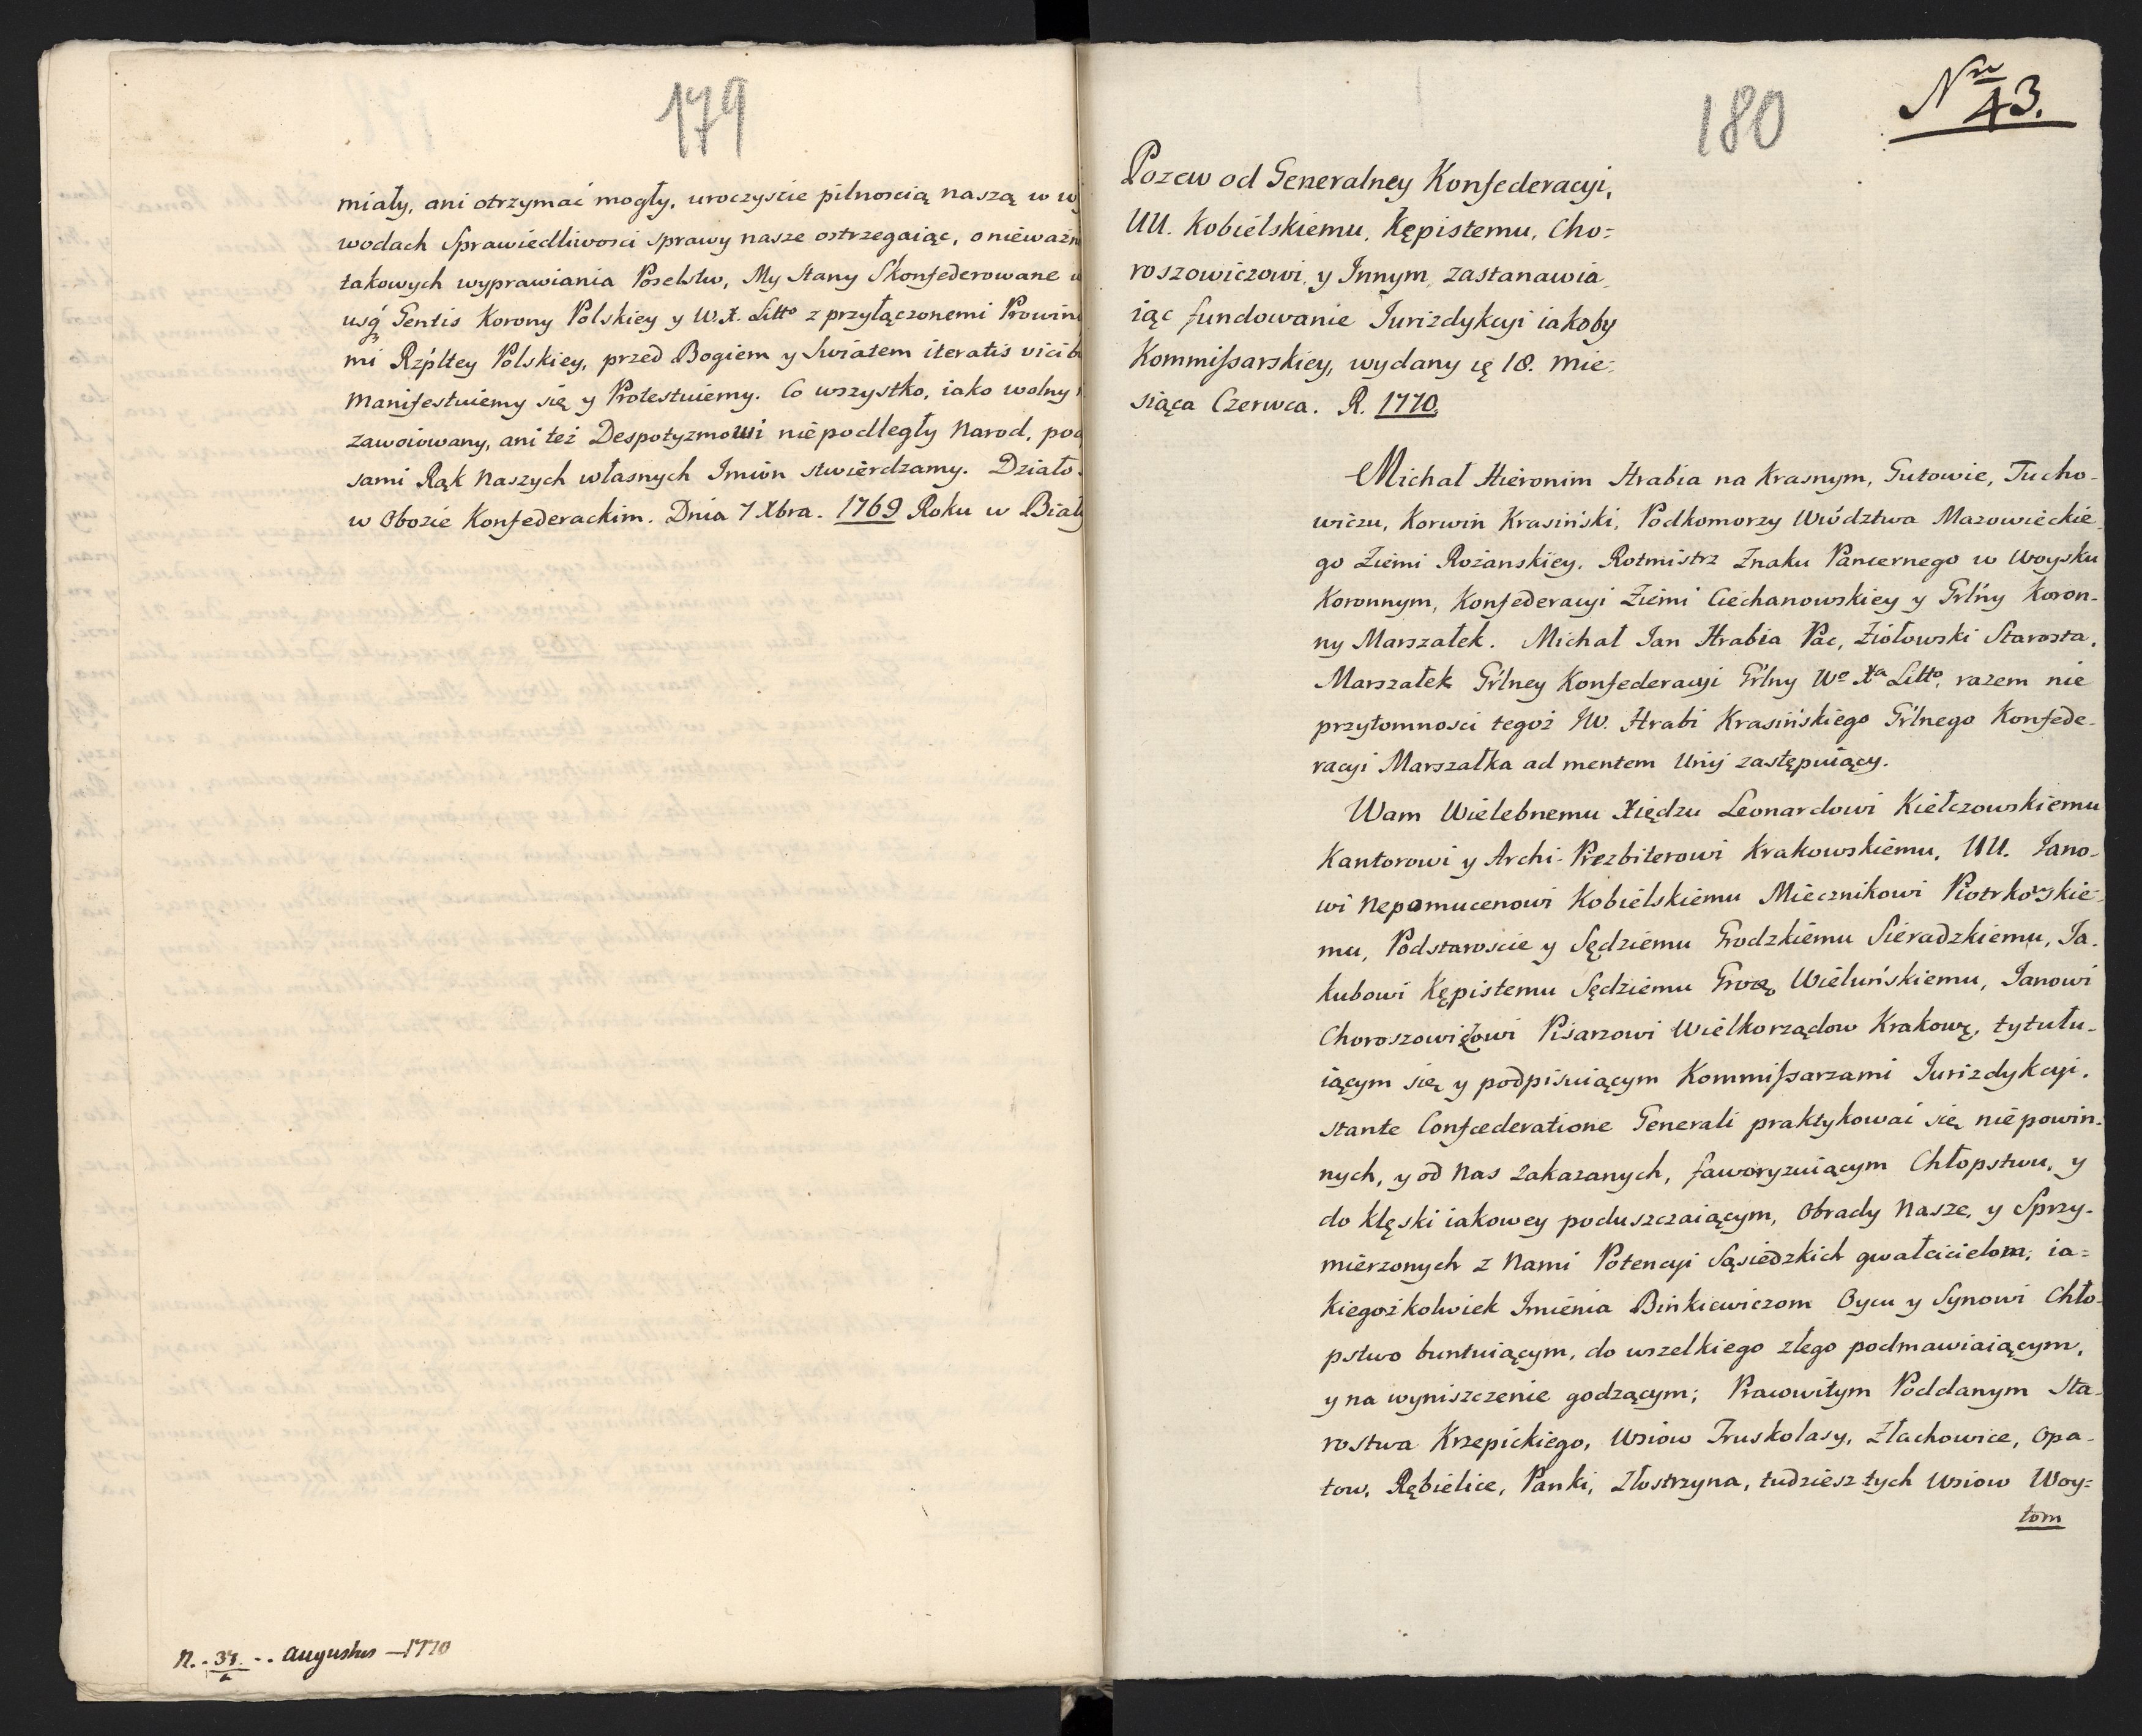 179
miały, ani otrzymać mogły, uroczyście pilnoscią naszą w
wodach Sprawiedliwosci sprawy nasze ostrzegaiąc, o nieważn
takowych wyprawiania Poselstw, My Stany Skonfederowane
Gentis Korony Polskiey y W. X. Litto z przyłączonemi Prowin
mi Rzpltey Polskiey, przed Bogiem y Swiatem iteratis vicib
Manifestuiemy się y Protestuiemy. Co wszystko, iako wolny
zawoiowany, ani też Despotyzmowi niepodległy Narod, pod
sami Rąk Naszych własnych Imion stwierdzamy. Działo
w Obozie Konfederackim. Dnia 7 Xbra. 1769 Roku w Biały
Augustus - 1770
180
Nro 43.
Pozew od Generalney Konfederacyi,
UU. Kobielskiemu, Kępistemu, Cho=
roszowiczowi, y Innym, zastanawia
iąc fundowanie Jurizdykcyi iakoby
Kommissarskiey, wydany 18. Mie=
siąca Czerwca. R. 1770.
Michał Hieronim Hrabia na Krasnym, Gutowie, Tucho-
wiczu, Korwin Krasiński, Podkomorzy Wództwa Mazowieckie
go Ziemi Rożanskiey. Rotmistrz Znaku Pancernego w Woysku
Koronnym, Konfederacyi Ziemi Ciechanowskiey y Grlny Koron-
ny Marszałek. Michał Jan Hrabia Pac, Ziółowski Starosta,
Marszałek Grlney Konfederacyi Grlny Wo Xa Litto, razem nie
przytomnosci tegoż JW. Hrabi Krasińskiego Grlnego Konfede-
racyi Marszałka ad mentem Unij zastępuiący.
Wam Wielebnemu Xiędzu Leonardowi Kiełczowskiemu
Kantorowi y Archi-Prezbiterowi Krakowskiemu, UU. Jano-
wi Nepomucenowi Kobielskiemu Miecznikowi Piotrkowskie-
mu, Podstaroscie y Sędziemu Grodzkiemu Sieradzkiemu, Ja-
kubowi Kępistemu Sędziemu Wieluńskiemu, Janowi
Choroszowiczowi Pisarzowi Wielkorządow Krakow, tytułu-
iącym się y podpisuiącym Kommissarzami Jurizdykcyi,
stante Confœderatione Generali praktykować się niepowin-
nych, y od Nas zakazanych, faworyzuiącym Chłopstwu, y
do klęski iakowey poduszczaiącym, Obrady Nasze, y Sprzy-
mierzonych z Nami Potencyi Sąsiedzkich gwałcicielom; ia=
kiegożkolwiek Imienia Binkiewiczom Oycu y Synowi Chło-
pstwo buntuiącym, do wszelkiego złego podmawiaiącym,
y na wyniszczenie godzącym; Prawowitym Poddanym Sta-
rostwa Krzepickiego, Wsiow Truskolasy, Złachowice, Opa-
tow, Rębielice, Panki, Złostrzyna, tudziesz tych Wsiow Woy=
tom